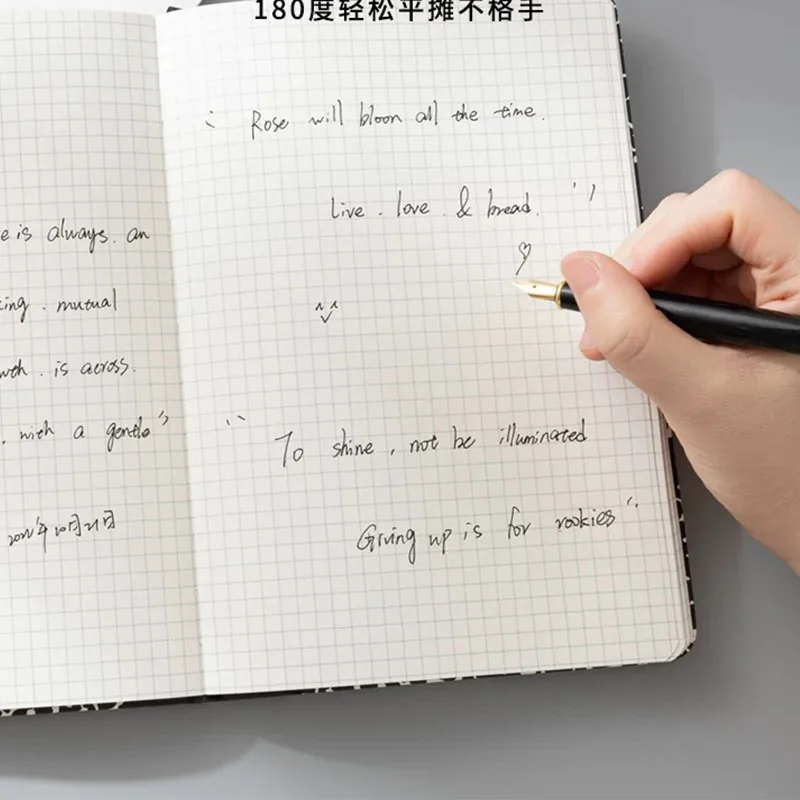 180度轻松平摊不格手
e is always. an
king. mutual
wth. is across.
. with a gentle"
10月21日
Rose will bloon all the time.
live. love. & bread. "
" To shine, not be illuminated
Giving up is for rookies"